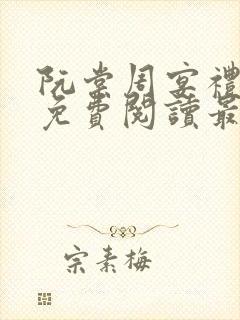 阮棠周宴禮
免費閱讀最
宗素梅